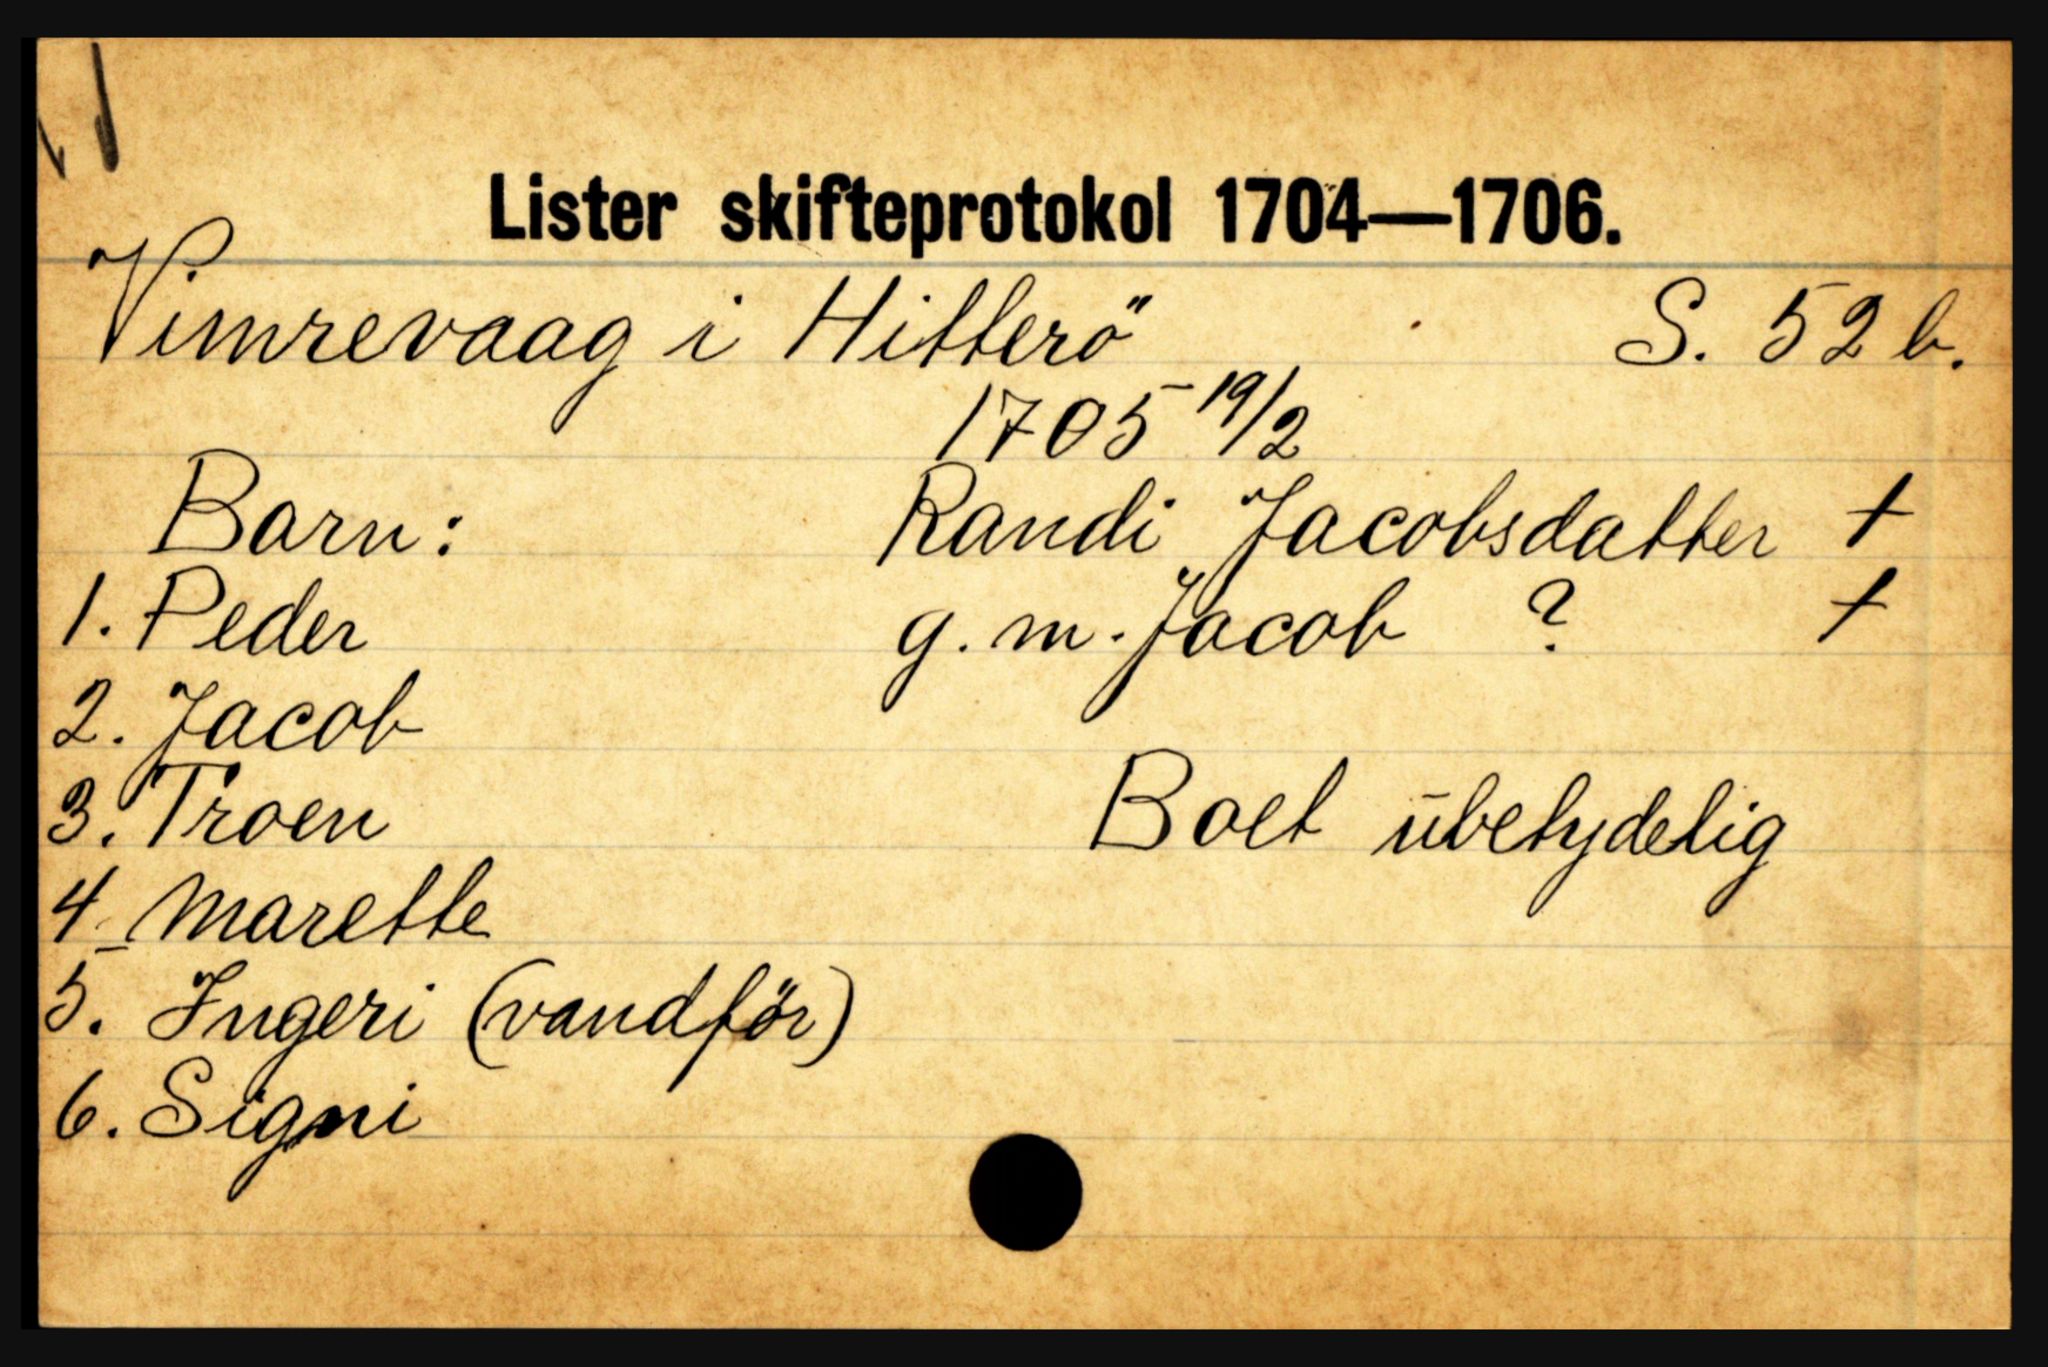 Lister skifteprotokol 1704—1706.
Vimrevaag i Hitterö S. 52 b.
1705 19/2
Barn: Randi Jacobsdatter +
1. Peder g. m. Jacob ? +
2. Jacob
3. Troen Boet ubetydelig
4. Marette
5. Ingeri (vandför)
6. Signi